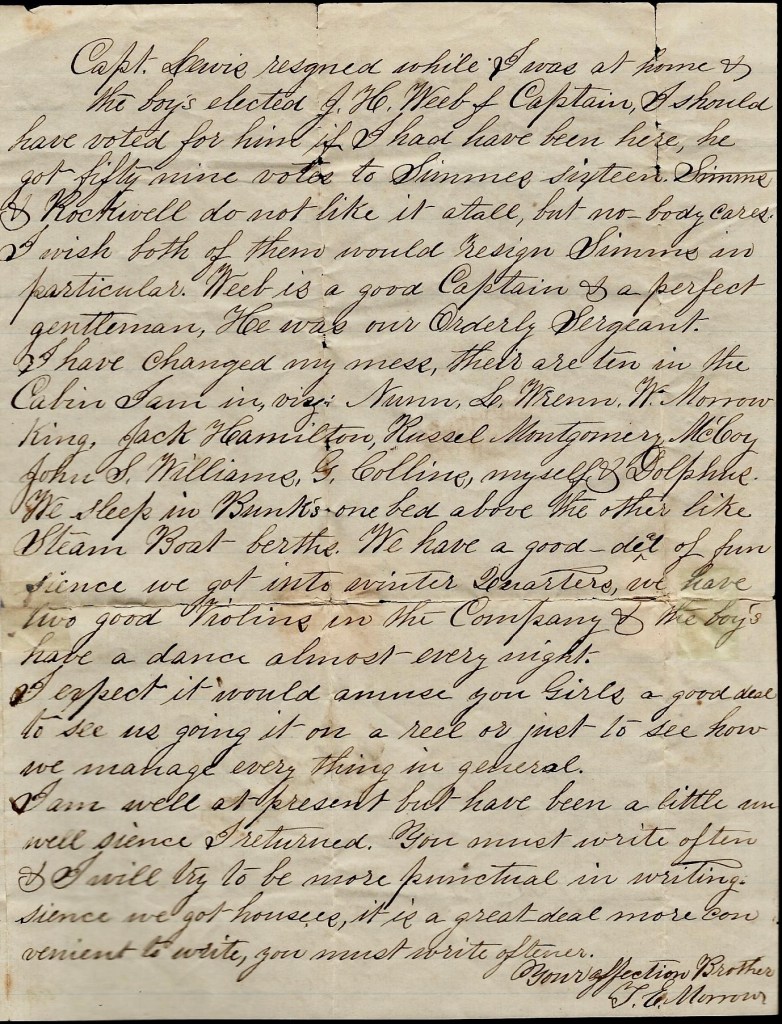 Capt. Lewis resgned while I was at home &
the boy's elected J. H. Weeb Captain, I should
have voted for him if I had have been here, he
got fifty nine votes to Simmes sixteen. Simms
& Rockwell do not like it atall, but no-body cares.
I wish both of them would resign Simms in
particular. Weeb is a good Captain & a perfect
gentleman, He was our Orderly Sergeant.
I have changed my mess, their are ten in the
Cabin I am in, viz; Nunn, L. Wrenn, W. Morrow
King, Jack Hamilton, Russel Montgomery, McCoy
John S. Williams, G. Collins, myself & Dolphus.
We sleep in Bunk's one bed above the other like
Steam Boat berths. We have a good-deal of fun
sience we got into winter Quarters, we have
two good Violins in the Company & the boy's
have a dance almost every night.
I expect it would amuse you Girls a good deal
to see us going it on a reel or just to see how
we manage every thing in general.
I am well at present but have been a little un
well sience I returned. You must write often
& I will try to be more punctual in writing.
sience we got houses, it is a great deal more con
venient to write, you must write oftener.
Your affection Brother
T. E. Morrow